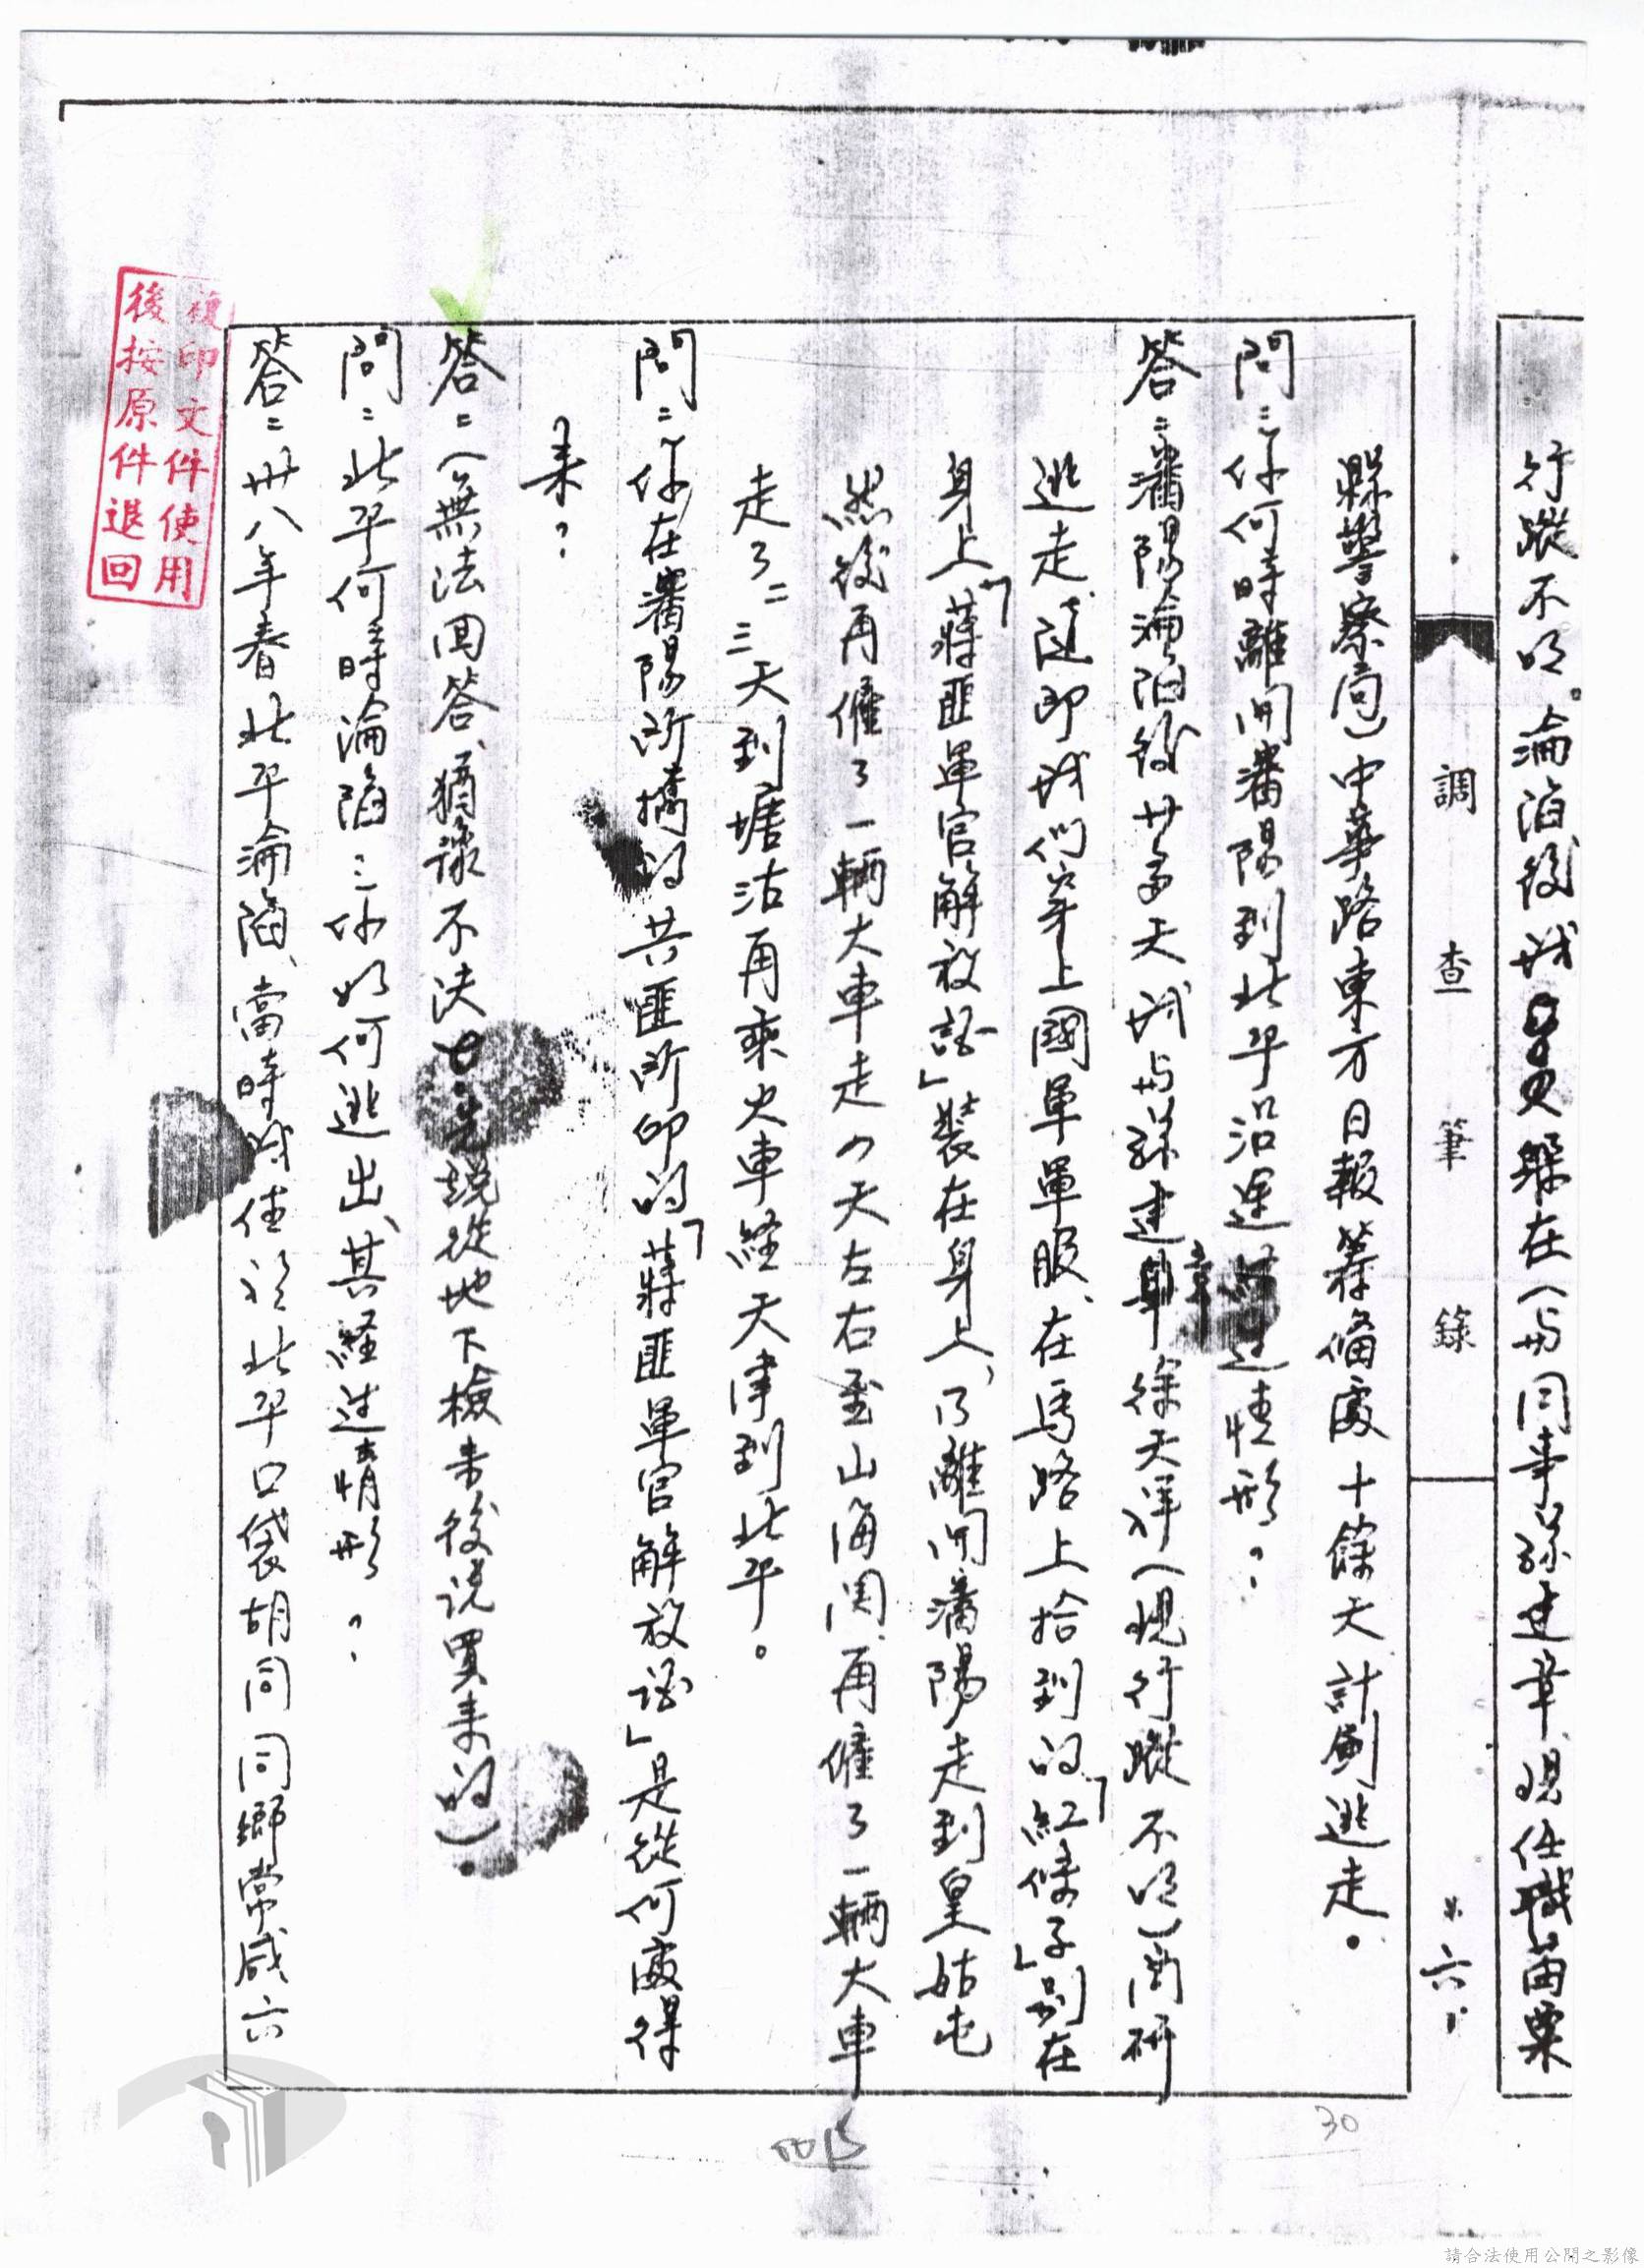 行蹤不明。淪陷後我躲在(與同事孫建章現任職苗栗
調查筆錄
六
縣警察局)中華路東方日報籌備處十餘天計劃逃走。
問:你何時離開瀋陽到北平沿途經過情形?
答:瀋陽淪陷後廿多天我與孫建章徐天祥(現行蹤不明)商研
逃走、隨即我們穿上國軍軍服、在馬路上拾到的「紅條子」別在
身上「蔣匪軍官解放證」裝在身上、乃離開瀋陽走到皇姑屯
然後再僱了一輛大車走八天左右至山海関、再僱了一輛大車
走了二三天到塘沽再乘火車經天津到北平。
問:你在瀋陽所攜的共匪所印的「蔣匪軍官解放證」是從何處得
來?
答:(無法回答、猶豫不決先說從地下檢來後說買来的)
問:北平何時淪陷:你如何逃出、其經過情形?
答:卅八年春北平淪陷、當時我住於北平口袋胡同同鄉常咸六
複印文件使用
後按原件退回
30
請合法使用公開之影像